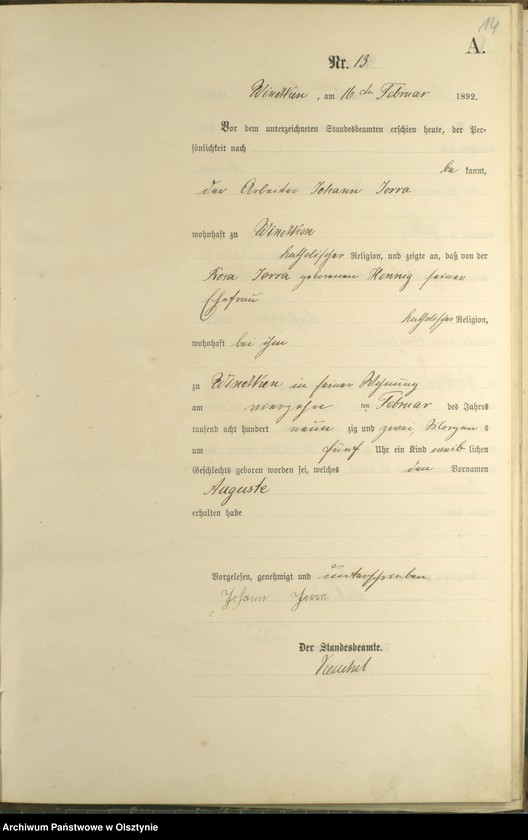 14
A.
Nr. 13.
am 16 ten Februar 1892.
Vor dem unterzeichneten Standesbeamten erschien heute, der Per-
sönlichkeit nach
be kannt,
der Arbeiter Johann Jorra
wohnhaft zu
katholischer Religion, und zeigte an, daß von der
Rosa Jorra geborenen Hennig seiner
Ehefrau
katholischer Religion,
wohnhaft bei ihm
zu in seiner Wohnung
am vierzehn ten Februar des Jahres
tausend acht hundert neun zig und zwei, Morgen s
um fünf Uhr ein Kind weib lichen
Geschlechts geboren worden sei, welches den Vornamen
Auguste
erhalten habe
Vorgelesen, genehmigt und unterschrieben
Johann Jorra
Der Standesbeamte.
Archiwum Państwowe w Olsztynie